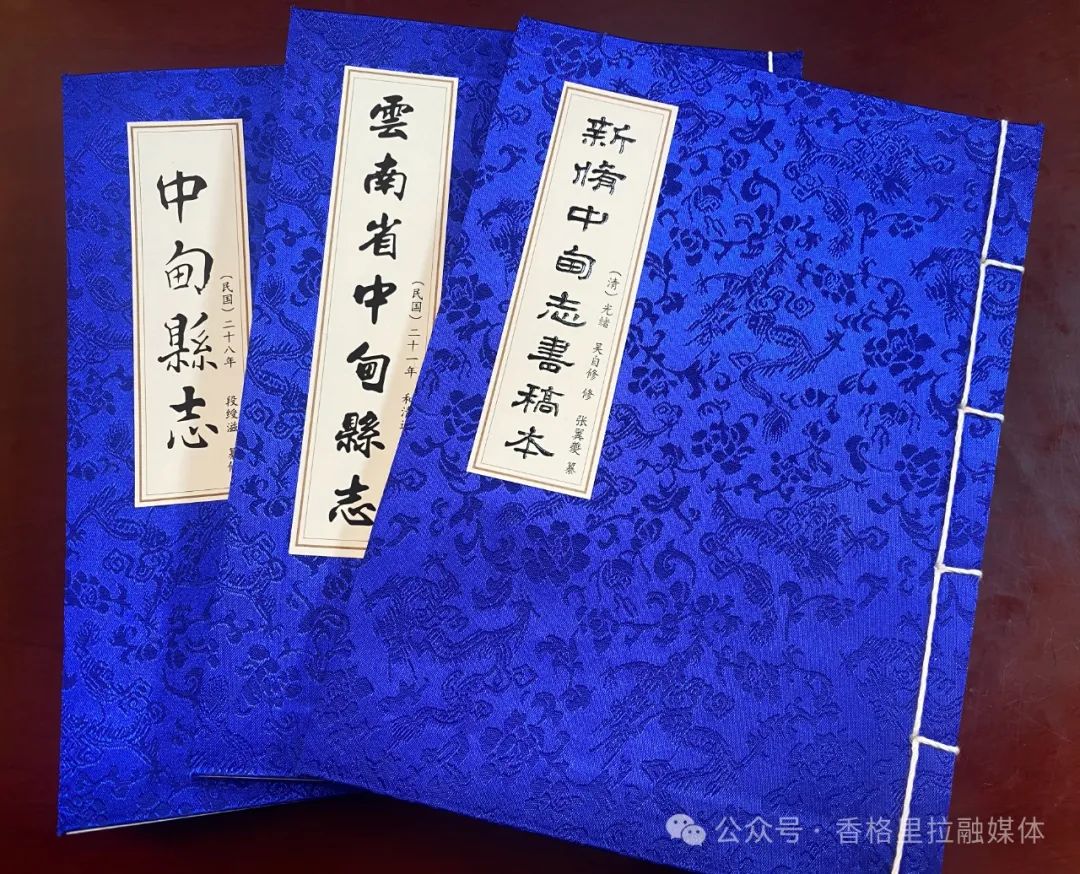 中甸縣志
（民国）二十八年 段绶滋
雲南省中甸縣志
（民国）二十一年
新脩中甸志書稿本
（清）光緒 吴自修 修 张翼夔 纂
公众号·香格里拉融媒体